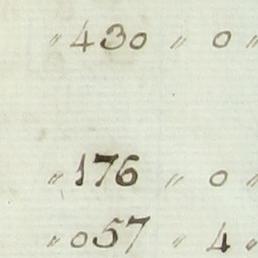 〃 430 〃 0 〃
〃 176 〃 0 〃
〃 057 〃 4 〃